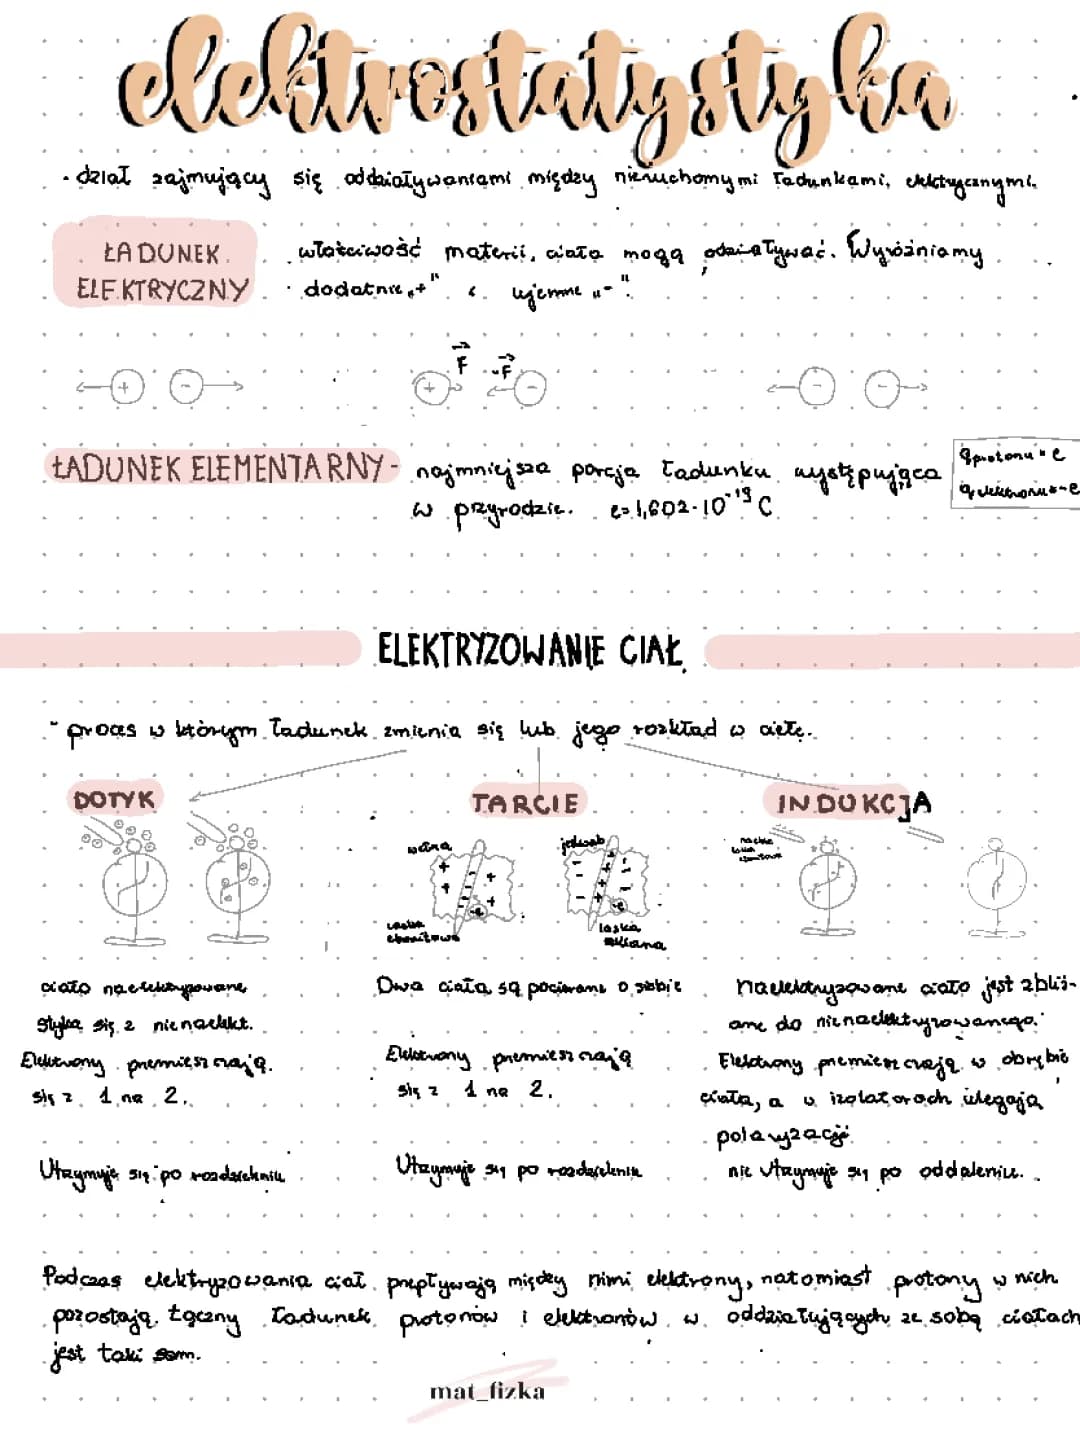 elektrostatystyka
· dział zajmujący się oddziaływaniami między nieruchomymi ładunkami elektrycznymi.
ŁADUNEK ELEKTRYCZNY
właściwość materii, ciała mogą odziaływać. Wyróżniamy
dodatnie „+" i ujemne „-".
+ -
F -F
+ -
- -
ŁADUNEK ELEMENTARNY - najmniejsza porcja ładunku występująca
w przyrodzie. e=1,602·10⁻¹⁹ C
q protonu = e
q elektronu = -e
ELEKTRYZOWANIE CIAŁ
- proces w którym ładunek zmienia się lub jego rozkład w ciele.
DOTYK
TARCIE
INDUKCJA
wełna
laska
ebonitowa
jedwab
laska
szklana
ciało naelektryzowane
styka się z nienaelekt.
Elektrony przemieszczają
się z 1 na 2.
Utrzymuje się po rozdzieleniu
Dwa ciała są pocierane o siebie
Elektrony przemieszczają
się z 1 na 2.
Utrzymuje się po rozdzieleniu
Naelektryzowane ciało jest zbliż-
ane do nienaelektyzowanego.
Elektrony przemieszczają w obrębie
ciała, a w izolatorach ulegają
polaryzacji
nie utrzymuje się po oddaleniu.
Podczas elektryzowania ciał przepływają między nimi elektrony, natomiast protony w nich
pozostają. Łączny ładunek protonów i elektronów w oddziałujących ze sobą ciałach
jest taki sam.
mat_fizka